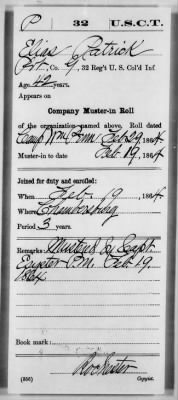 P 32 U.S.C.T.
Elias Patrick
Pvt., Co. G, 32 Reg't U. S. Col'd Inf
Age 42 years.
Appears on
Company Muster-in Roll
of the organization named above. Roll dated
Camp Wm Penn Feb 29, 1864.
Muster-in to date Feb 19, 1864
Joined for duty and enrolled:
When Feb. 19, 1864.
Where Chambersburg
Period 3 years.
Remarks: Mustered by Capt
P.M. Feb. 19,
1864
Book mark:
(356) Copyist.